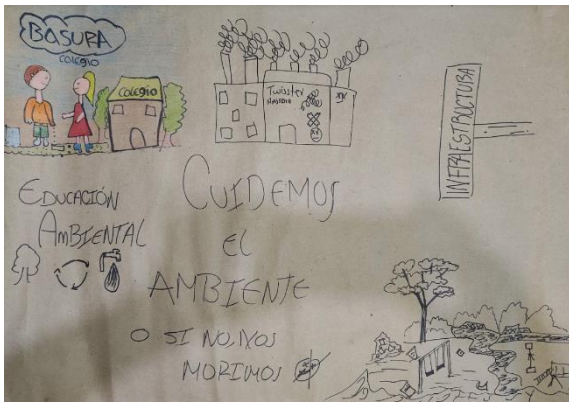 BASURA
COLEGIO
COLEGIO
Twisster
INFRAESTRUCTURA
EDUCACIÓN
AMBIENTAL
CUIDEMOS
EL
AMBIENTE
O SI NO, NOS
MORIMOS